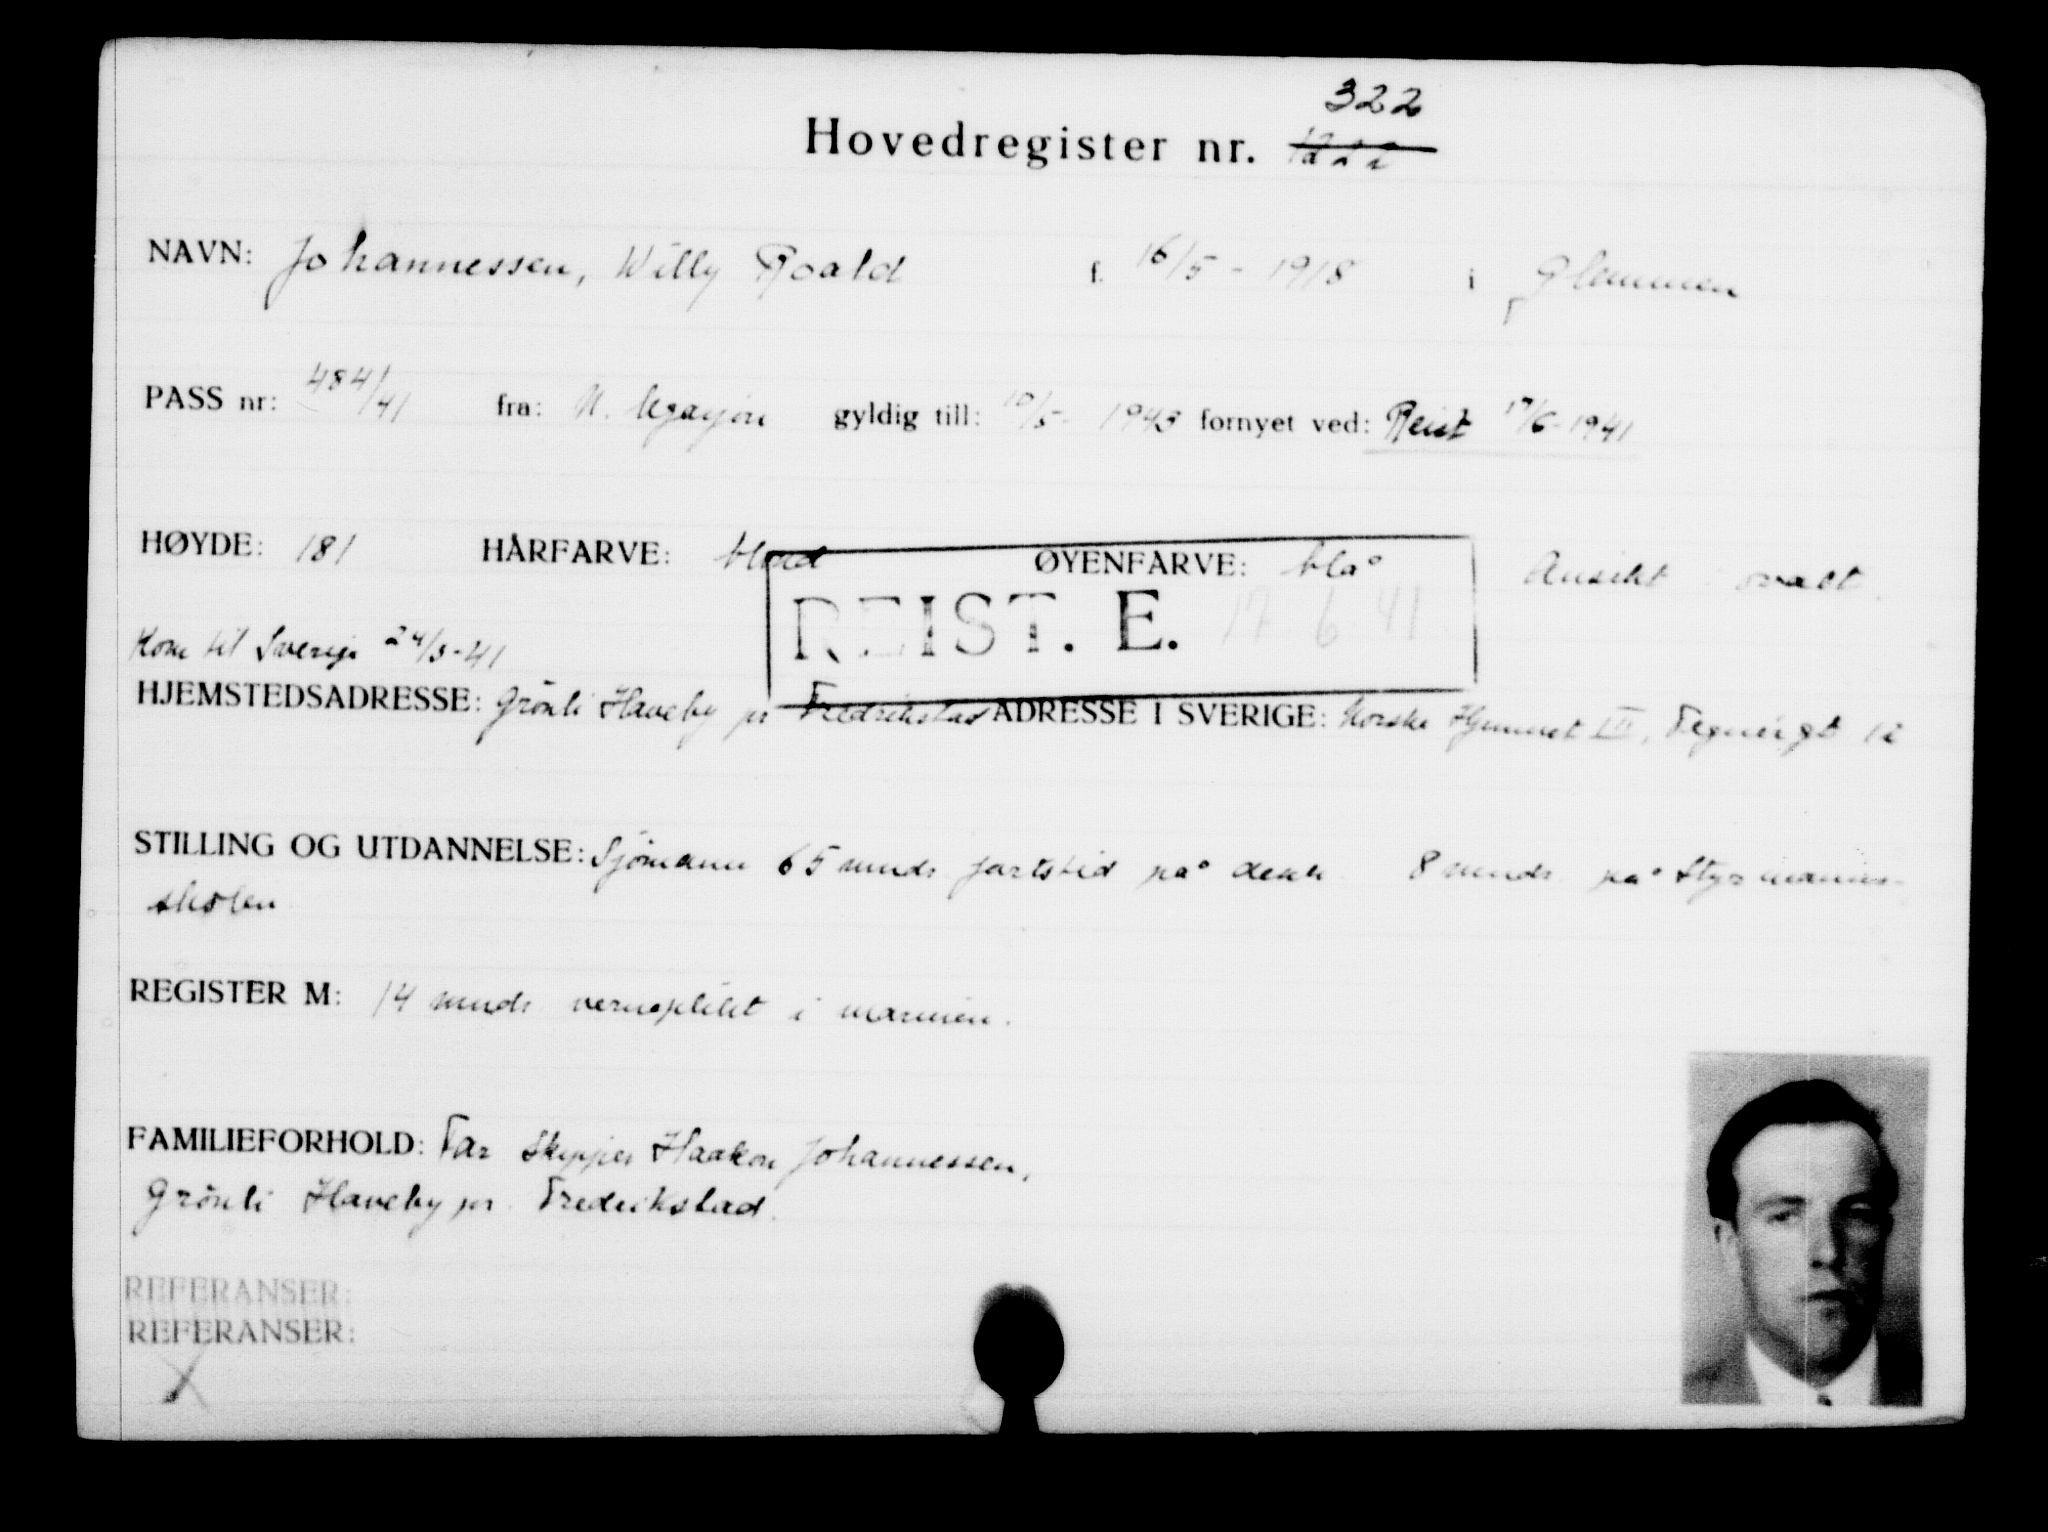 322
Hovedregister nr.
NAVN: Johannessen, Willy Roald f. 16/5 - 1918 i Glemmen
PASS nr: 484/41 fra: N. legasjon gyldig till: 10/5 - 1943 fornyet ved: Reist 17/6-1941
HØYDE: 181 HÅRFARVE: blond ØYENFARVE: blå Ansikt ovalt.
REIST. E. 17. 6. 41.
Kom til Sverige 24/3-41
HJEMSTEDSADRESSE: Grönli Haveby pr Fredrikstad ADRESSE I SVERIGE: Norske Hjemmet III, Tegnérgt 12
STILLING OG UTDANNELSE: Sjömann 65 mnds fartstid på dekk 8 mnds. på Styrmanns-
skolen
REGISTER M: 14 mnds verneplikt i marinen.
FAMILIEFORHOLD: Far Skipper Haakon Johannessen,
Grönli Haveby pr. Fredrikstad.
REFERANSER:
REFERANSER:
X